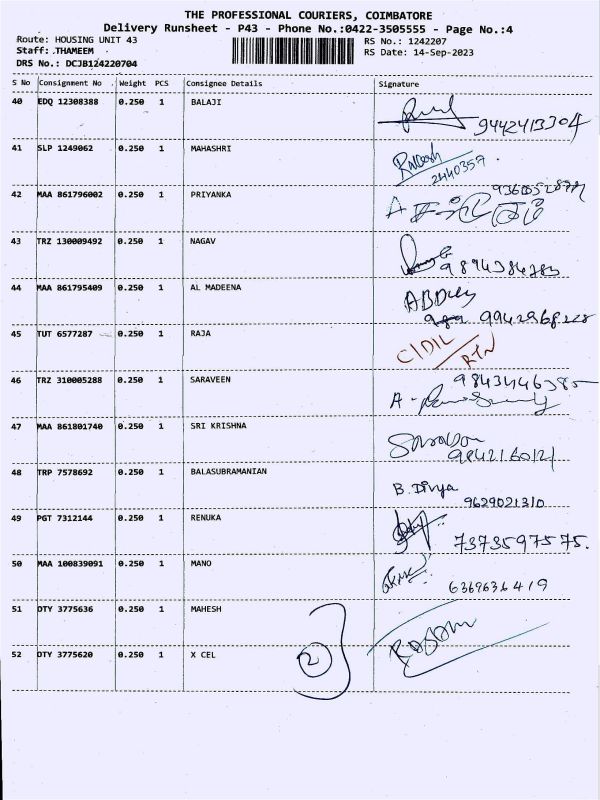 THE PROFESSIONAL COURIERS, COIMBATORE
Delivery Runsheet - P43 - Phone No.:0422-3505555 - Page No.:4
Route: HOUSING UNIT 43 RS No.: 1242207
Staff: THAMEEM RS Date: 14-Sep-2023
DRS No.: DCJB124220704
S No Consignment No Weight PCS Consignee Details Signature
40 EDQ 12308388 0.250 1 BALAJI
9442413304
41 SLP 1249062 0.250 1 MAHASHRI
2440357
42 MAA 861796002 0.250 1 PRIYANKA
43 TRZ 130009492 0.250 1 NAGAV
9894384783
44 MAA 861795409 0.250 1 AL MADEENA
45 TUT 6577287 0.250 1 RAJA
RTN
46 TRZ 310005288 0.250 1 SARAVEEN
9843446385
47 MAA 861801740 0.250 1 SRI KRISHNA
48 TRP 7578692 0.250 1 BALASUBRAMANIAN
B. Divya
9629021310
49 PGT 7312144 0.250 1 RENUKA
7373597575.
50 MAA 100839091 0.250 1 MANO
6369636419
51 DTY 3775636 0.250 1 MAHESH
52 DTY 3775620 0.250 1 X CEL
2